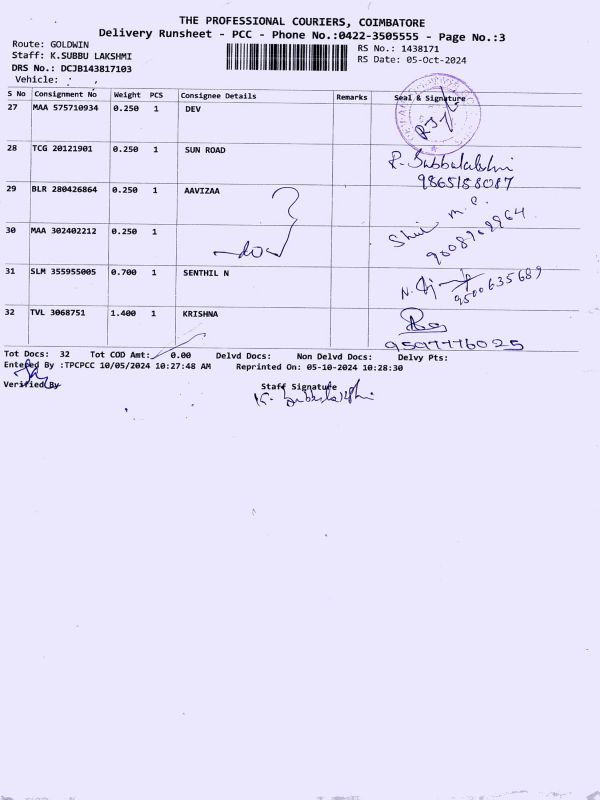 THE PROFESSIONAL COURIERS, COIMBATORE
Delivery Runsheet - PCC - Phone No.:0422-3505555 - Page No.:3
Route: GOLDWIN
Staff: K.SUBBU LAKSHMI
DRS No.: DCJB143817103
Vehicle:
RS No.: 1438171
RS Date: 05-Oct-2024
S No Consignment No Weight PCS Consignee Details Remarks Seal & Signature
27 MAA 575710934 0.250 1 DEV
28 TCG 20121901 0.250 1 SUN ROAD
9865158087
29 BLR 280426864 0.250 1 AAVIZAA
30 MAA 302402212 0.250 1
31 SLM 355955005 0.700 1 SENTHIL N
9500635689
32 TVL 3068751 1.400 1 KRISHNA
Tot Docs: 32 Tot COD Amt: 0.00 Delvd Docs: Non Delvd Docs: Delvy Pts:
Entered By :TPCPCC 10/05/2024 10:27:48 AM Reprinted On: 05-10-2024 10:28:30
Verified By
Staff Signature